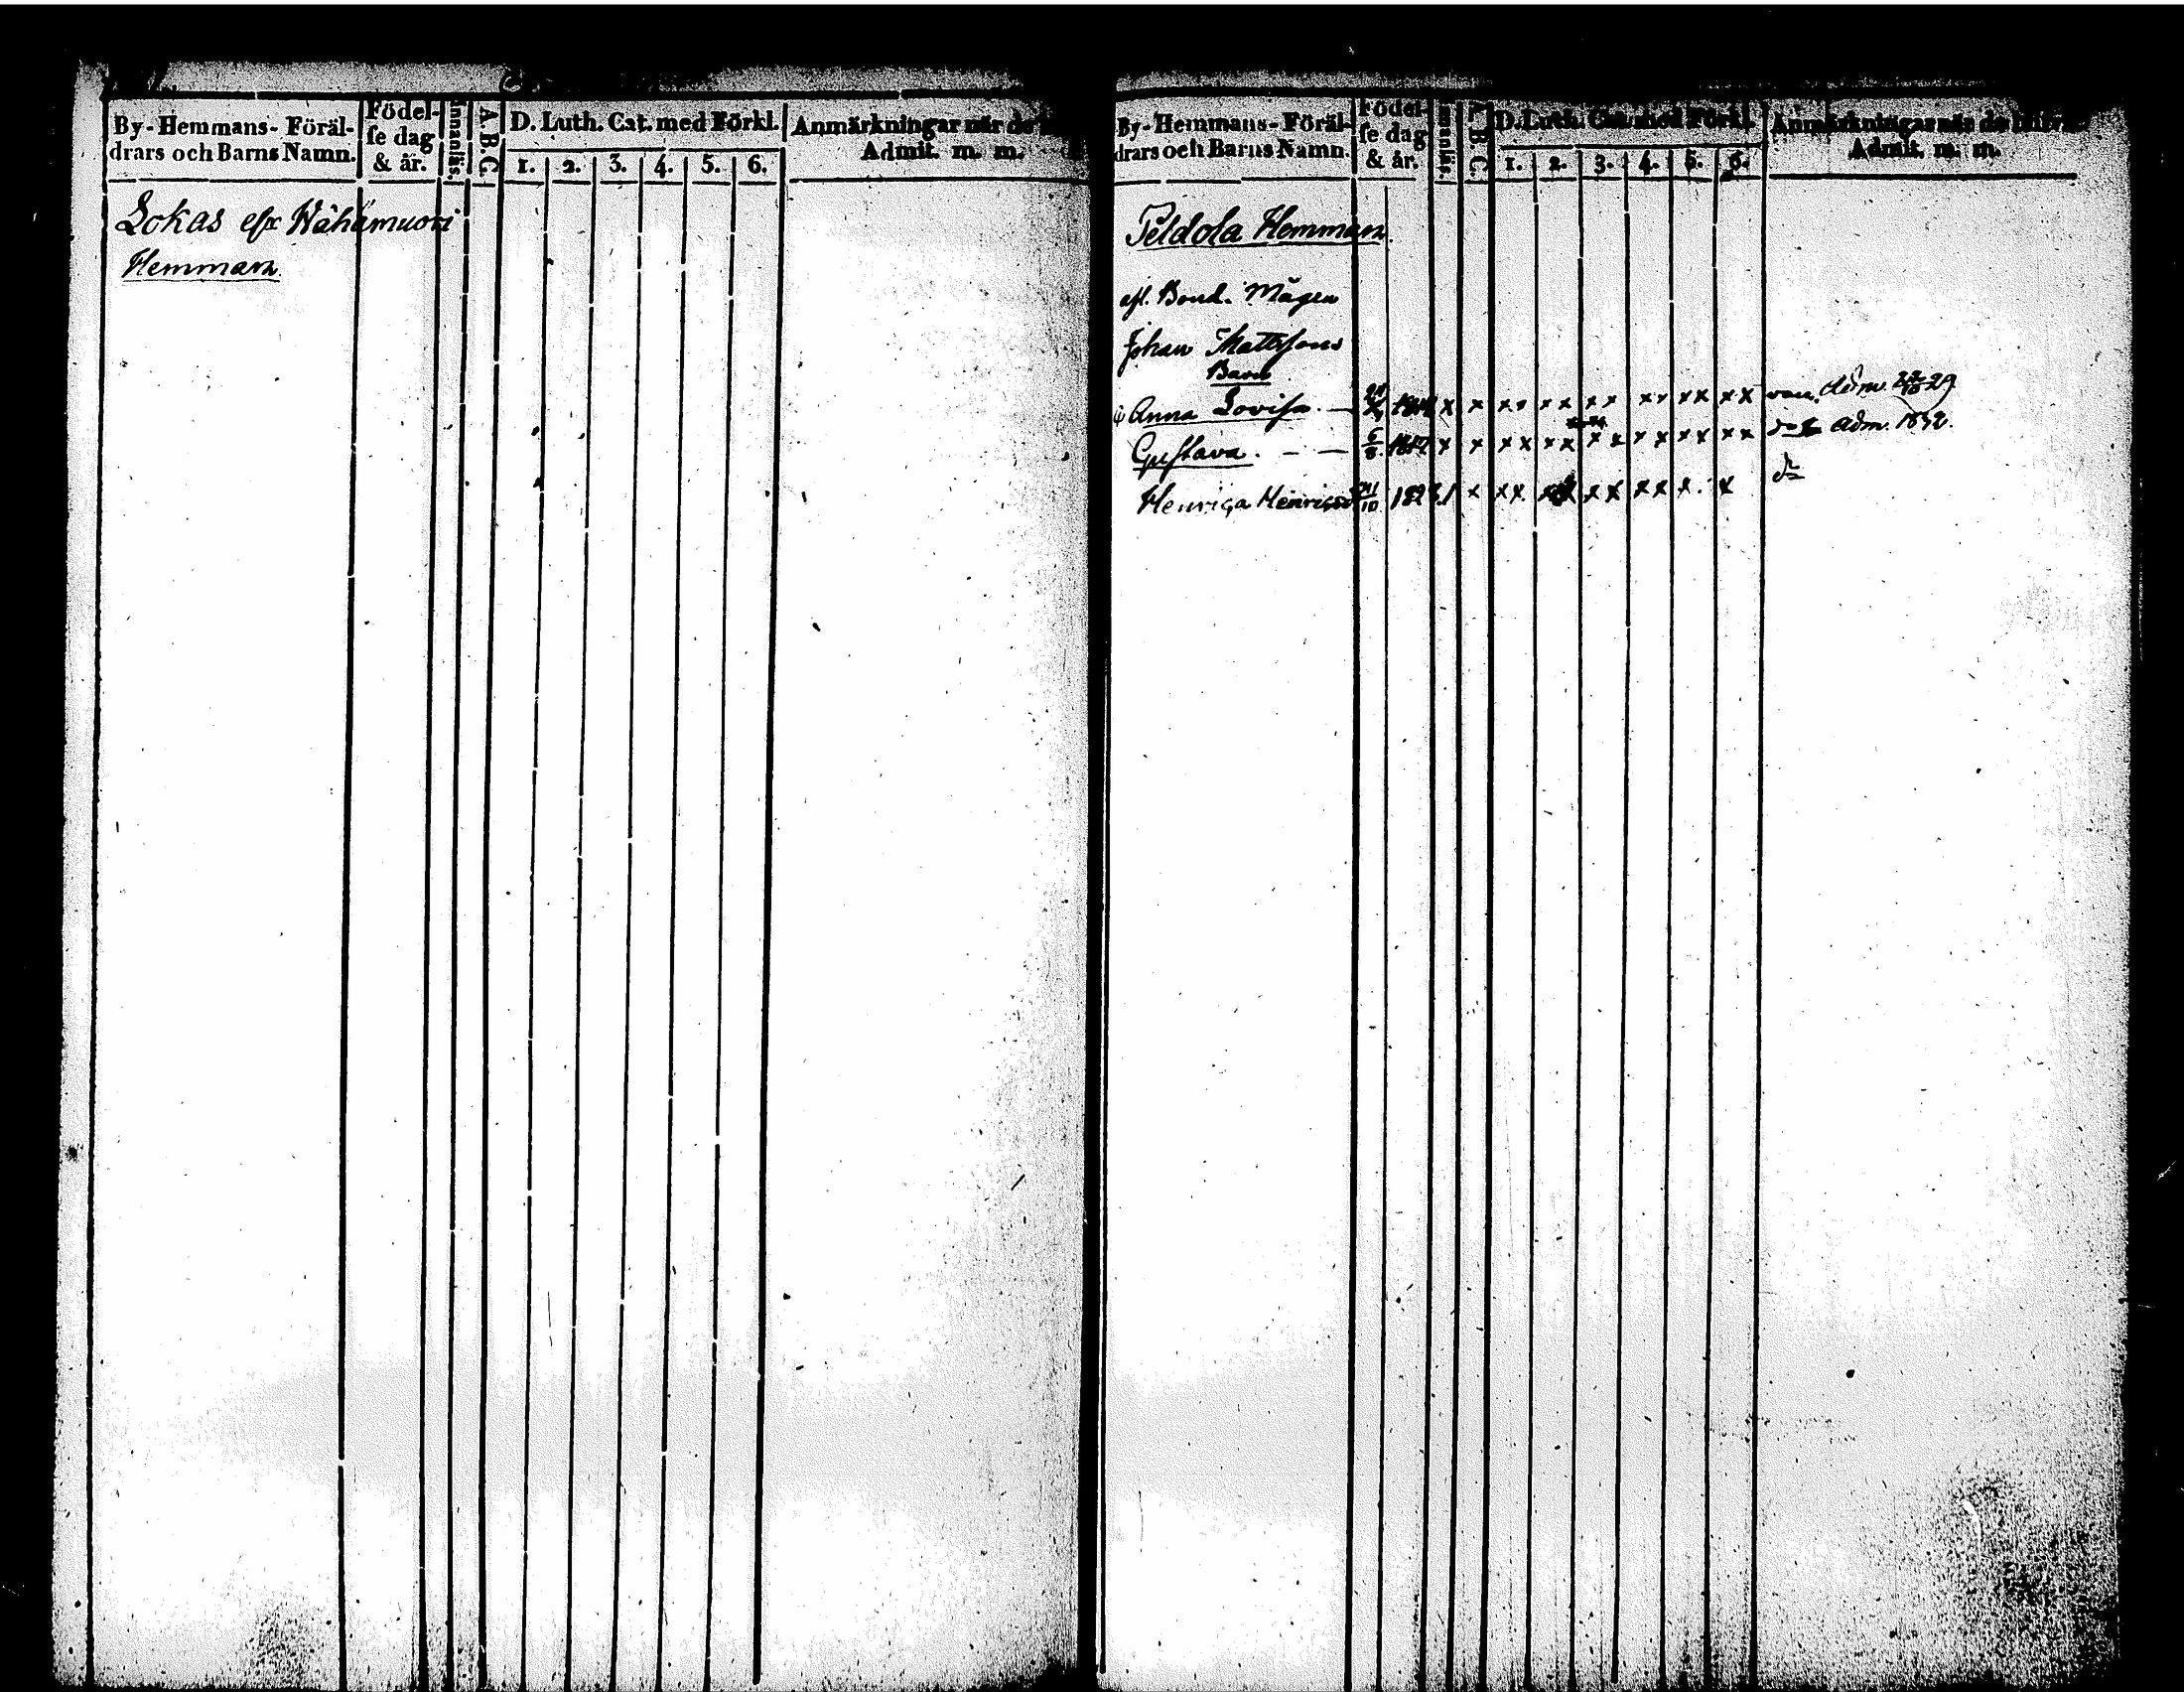 By-Hemmans-Föräl-
drars och Barns Namn.
Födel-
se dag
& år.
Innanläs.
A.B.C.
D. Luth. Cat. med Förkl.
1. 2. 3. 4. 5. 6.
Anmärkningar når de
Admit. m. m.
Lokas eller Wähämuori
Hemman
By-Hemmans-Föräl-
drars och Barns Namn.
Födel-
se dag
& år.
Innanläs.
A.B.C.
D. Luth. Cat. med Förkl.
1. 2. 3. 4. 5. 6.
Anmärkningar når de blifvit
Admit. m. m.
Peldola Hemman
afl. Bond. Mågen
Johan Mattssons
Barn
Anna Lovisa. — x x x x x x x x x x x x x x adm. 29
Gustava. — — 5/8 1817 x x x x x x x x x x x x x x adm. 1832.
Henrica Henricsd /10 1823 x x x x x x x x x x x do